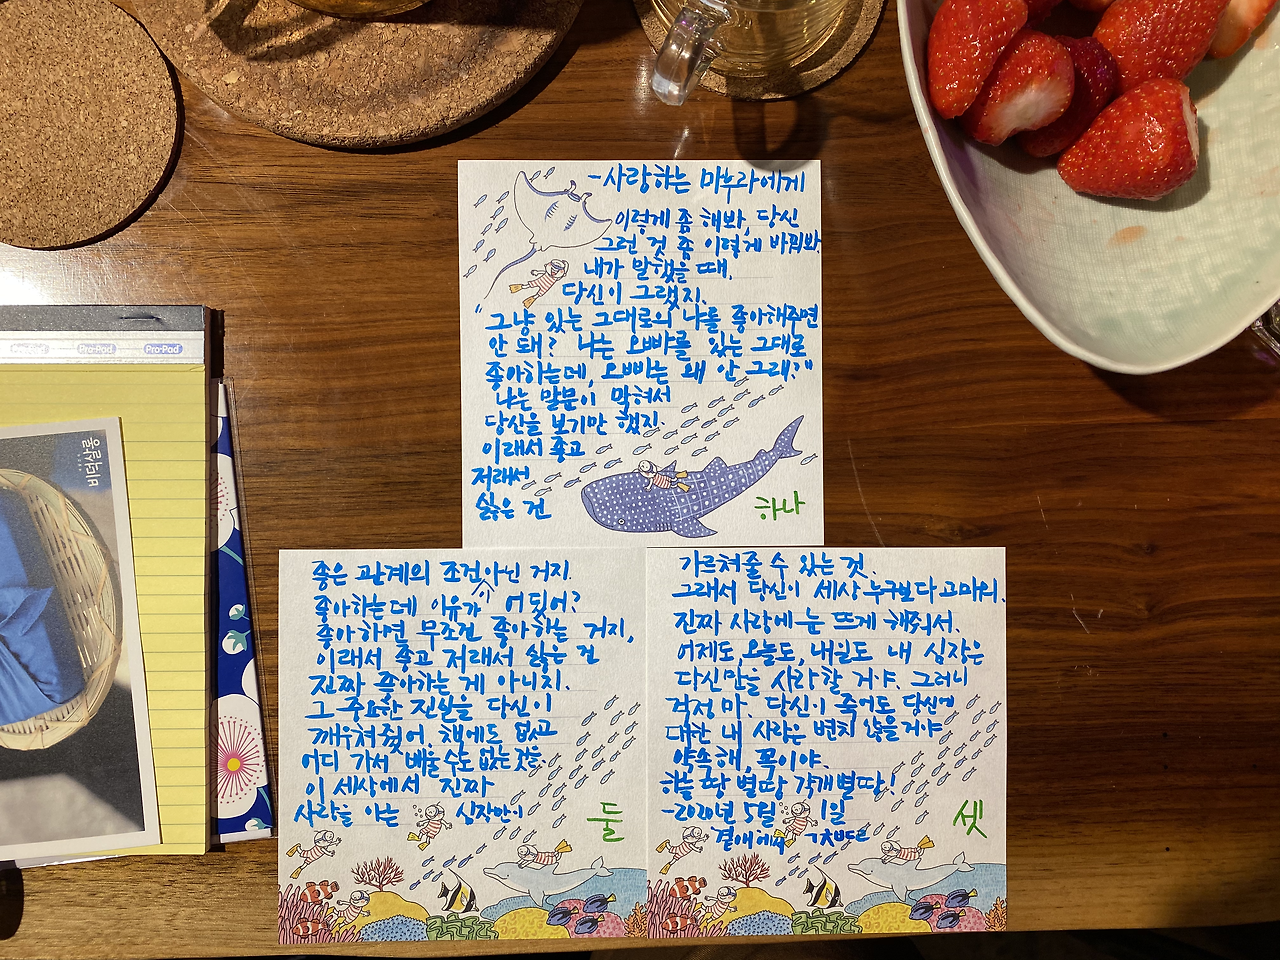 -사랑하는 마누라에게
이렇게 좀 해봐, 당신
그런 것 좀 이렇게 바꿔봐.
내가 말했을 때,
당신이 그랬지.
"그냥 있는 그대로의 나를 좋아해주면
안 돼? 나는 오빠를 있는 그대로
좋아하는데, 오빠는 왜 안 그래?"
나는 말문이 막혀서
당신을 보기만 했지.
이래서 좋고
저래서
싫은 건
하나
좋은 관계의 조건 아닌 거지.
좋아하는데 이유가 어딨어?
좋아하면 무조건 좋아하는 거지,
이래서 좋고 저래서 싫은 건
진짜 좋아하는 게 아니지.
그 중요한 진실을 당신이
깨우쳐줬어. 책에도 없고
어디 가서 배울 수도 없는 것을.
이 세상에서 진짜
사랑을 아는 심장만이
둘
가르쳐줄 수 있는 것.
그래서 당신이 세상 누구보다 고마워.
진짜 사랑에 눈 뜨게 해줘서.
어제도, 오늘도, 내일도 내 심장은
당신만을 사랑할 거야. 그러니
걱정 마. 당신이 죽어도 당신에
대한 내 사랑은 변치 않을 거야
약속해, 꼭이야.
하늘 땅 별땅 각개 별땅!
-2020년 5월 1일
곁애에서
셋
Pro-Pad
Pro-Pad
비덕살롱